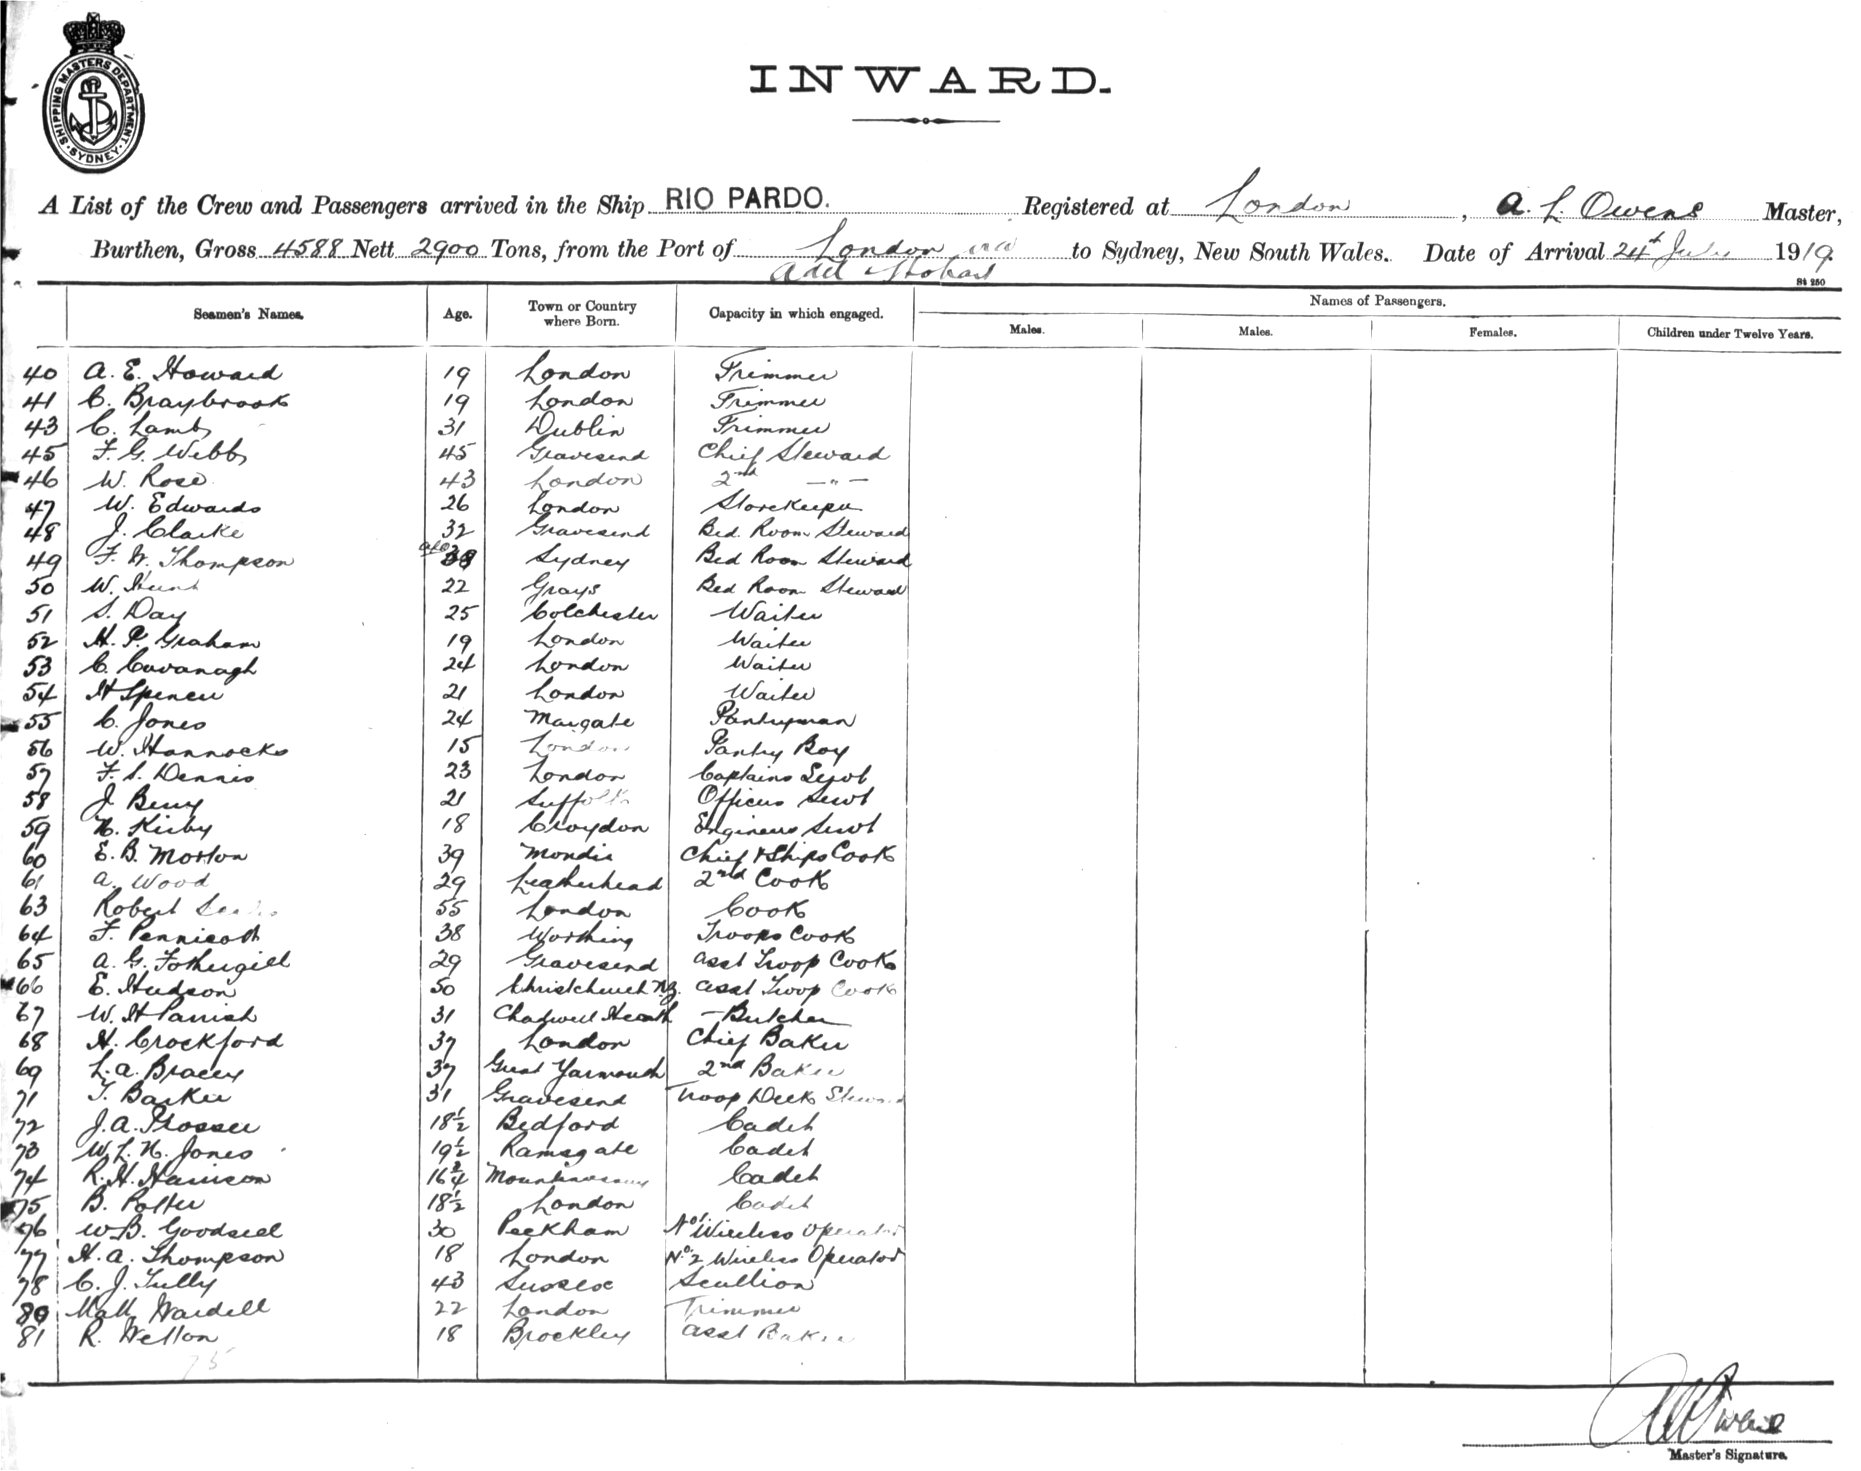 SHIPPING MASTERS DEPARTMENT. SYDNEY.
INWARD.
A List of the Crew and Passengers arrived in the Ship RIO PARDO. Registered at London, A. L. Owens Master,
Burthen, Gross 4588 Nett 2900 Tons, from the Port of London via to Sydney, New South Wales. Date of Arrival 24th July 1919.
Adel & Hobart
St 250
Seamen's Names. Age. Town or Country where Born. Capacity in which engaged. Names of Passengers.
Males. Males. Females. Children under Twelve Years.
40 A. E. Howard 19 London Trimmer
41 C. Braybrook 19 London Trimmer
43 C. Lamb 31 Dublin Trimmer
45 F. G. Webb 45 Gravesend Chief Steward
46 W. Rose 43 London 2nd — " —
47 W. Edwards 26 London Storekeeper
48 J. Clarke 32 Gravesend Bed Room Steward
49 F. W. Thompson Sydney Bed Room Steward
50 W. Hunt 22 Grays Bed Room Steward
51 S. Day 25 Colchester Waiter
52 H. P. Graham 19 London Waiter
53 C. Cavanagh 24 London Waiter
54 H Spencer 21 London Waiter
55 C. Jones 24 Margate Pantryman
56 W. Hannocks 15 London Pantry Boy
57 F. S. Dennis 23 London Captains Servt
58 J Berry 21 Suffolk Officers Servt
59 N. Kirby 18 Croydon Engineers Servt
60 E. B. Morton 39 Chief & Ships Cook
61 A. Wood 29 Leatherhead 2nd Cook
63 Robert 55 London Cook
64 F. Pennicott 38 Worthing Troops Cook
65 A. G. Fothergill 29 Gravesend Asst Troop Cook
66 E. Hudson 50 Christchurch N.Z. Asst Troop Cook
67 W. H Parrish 31 Chadwell Heath Butcher
68 H. Crockford 37 London Chief Baker
69 L. A. Bracey 37 Great Yarmouth 2nd Baker
71 T. Barker 31 Gravesend Troop Deck Steward
72 J. A. Prosser 18½ Bedford Cadet
73 W. L. N. Jones 19½ Ramsgate Cadet
74 R. H. Harrison 16¾ Cadet
75 B. Potter 18½ London Cadet
76 W. B. Goodsell 30 Peckham No 1 Wireless Operator
77 H. A. Thompson 18 London No 2 Wireless Operator
78 C. J. Tully 43 Sussex Scullion
80 Matt Wardell 22 London Trimmer
81 R. Welton 18 Brockley Asst Baker
75
Master's Signature.